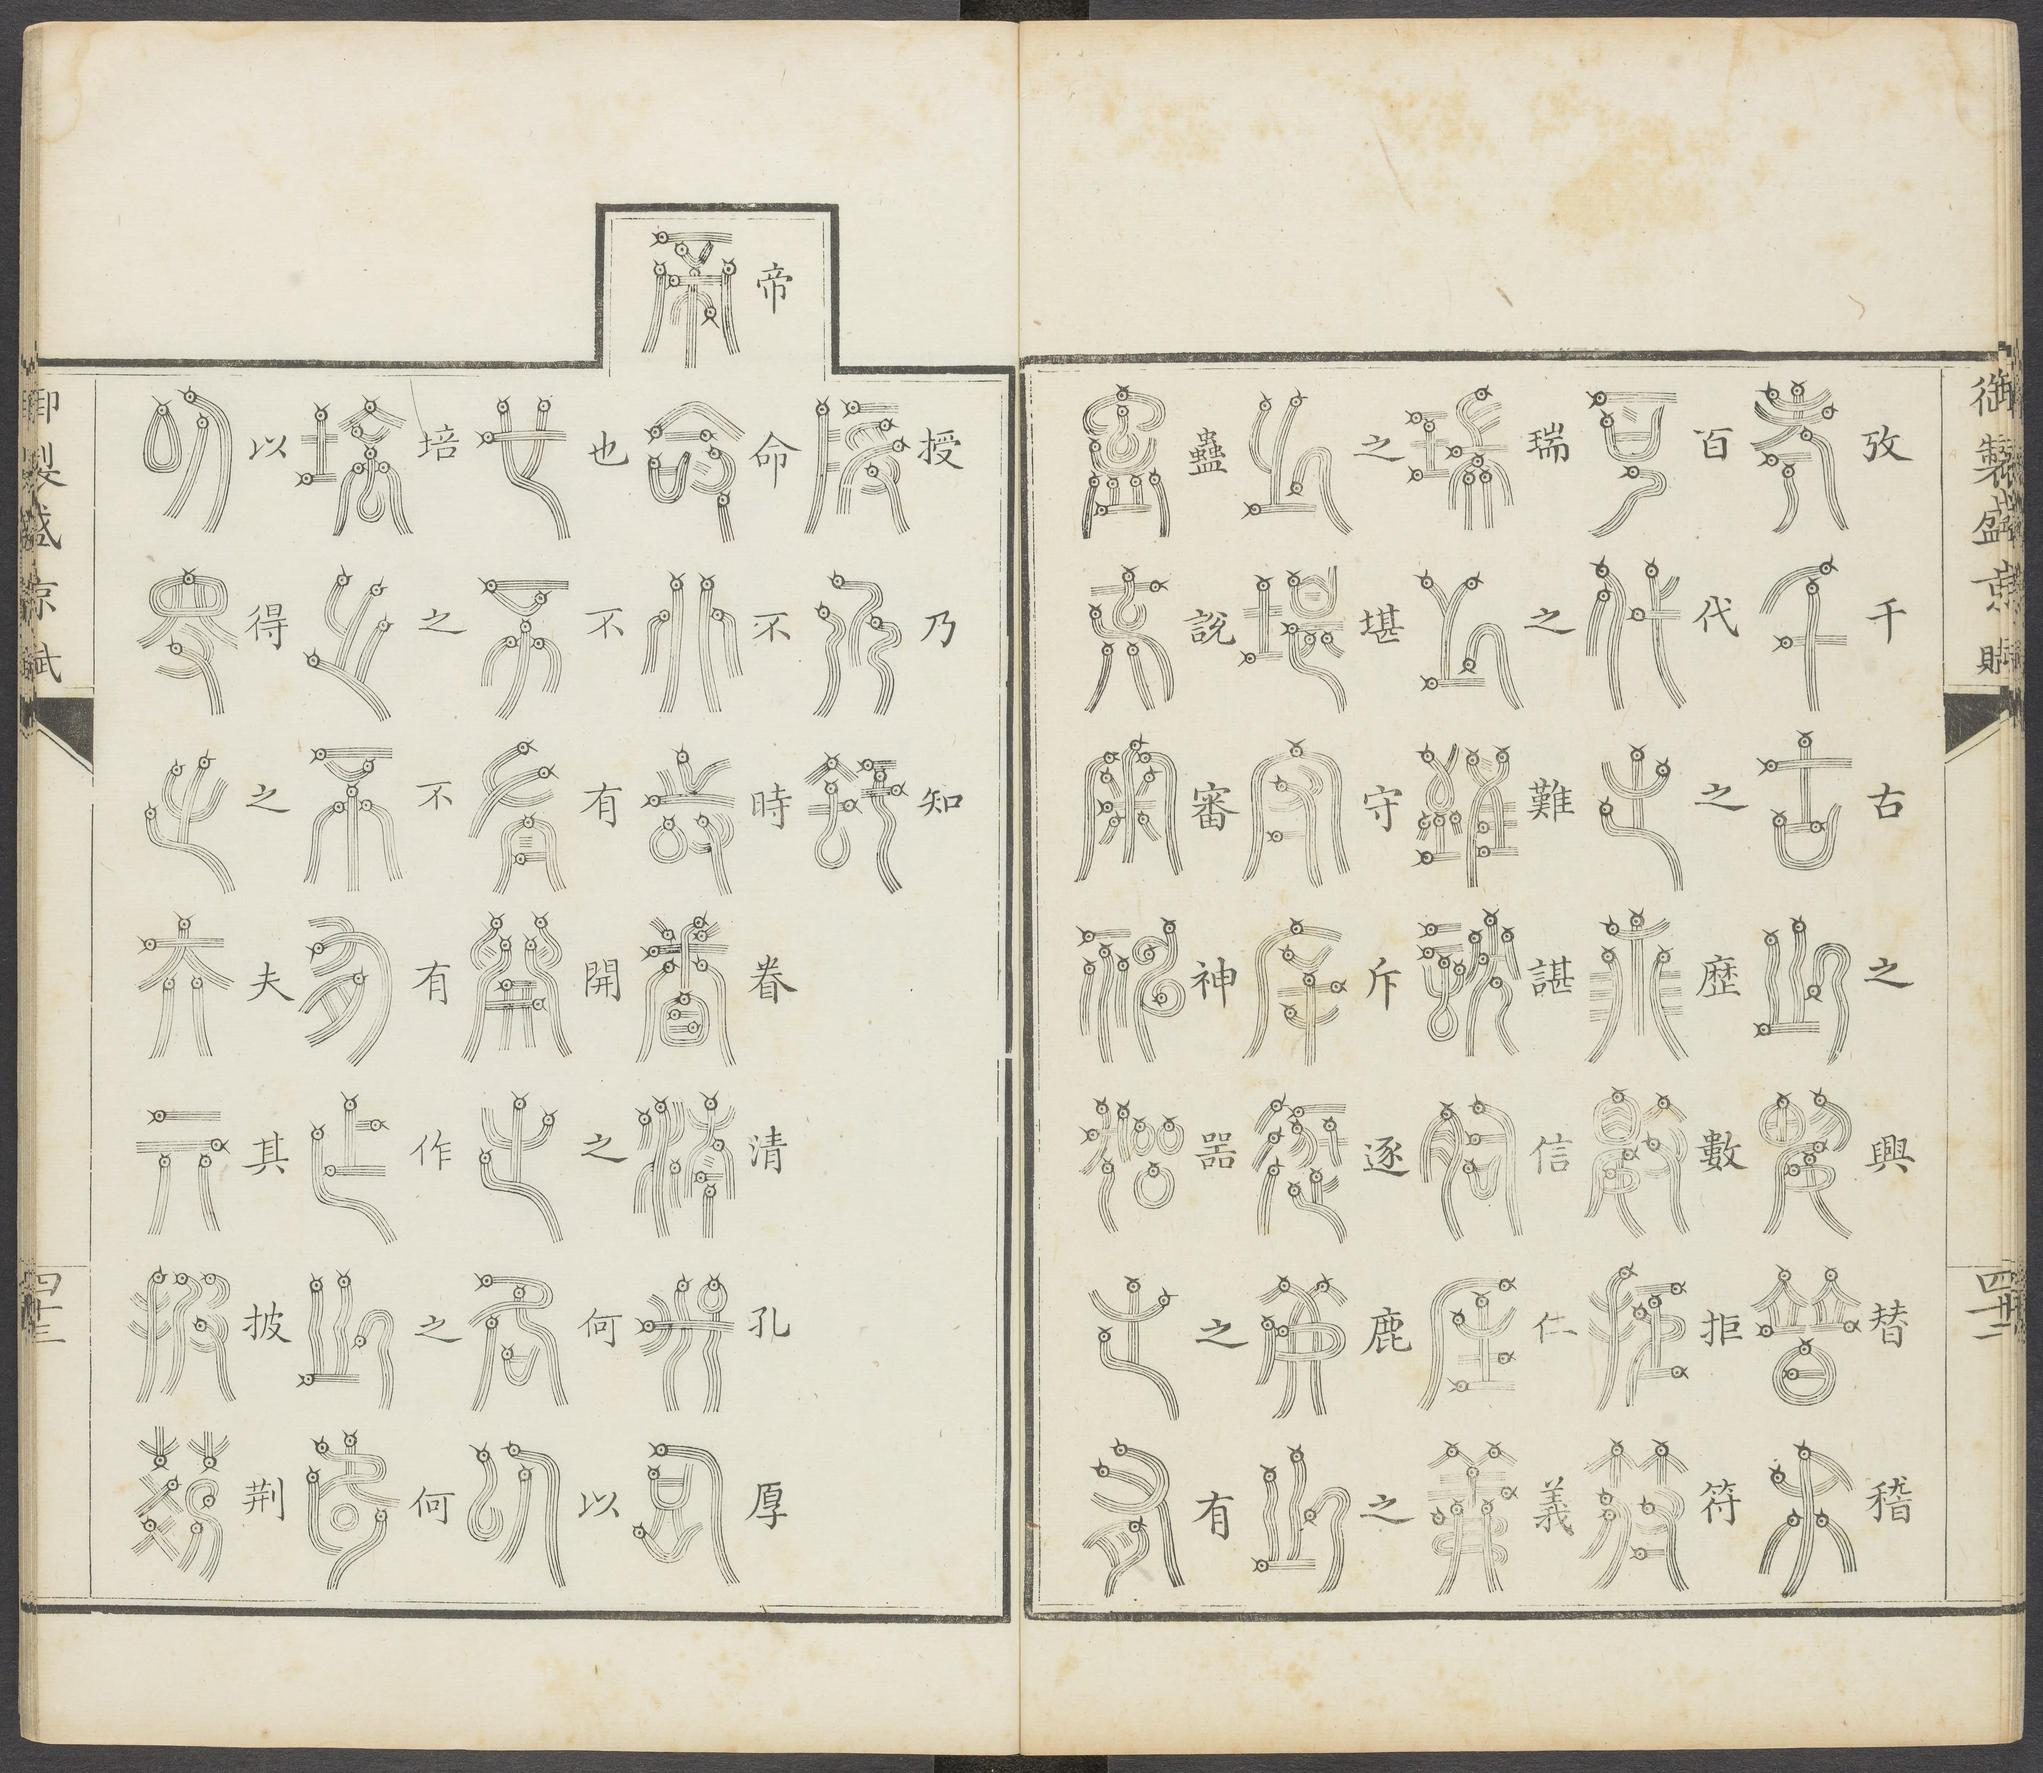 御製盛京賦
四十二
攷千古之興替稽
百代之歷數拒符
瑞之難諶信仁義
之堪守斥逐鹿之
蠱說審神器之有
授乃知
帝命不時眷清孔厚
也不有開之何以
培之不有作之何
以得之夫其披荆
御製盛京賦
四十三